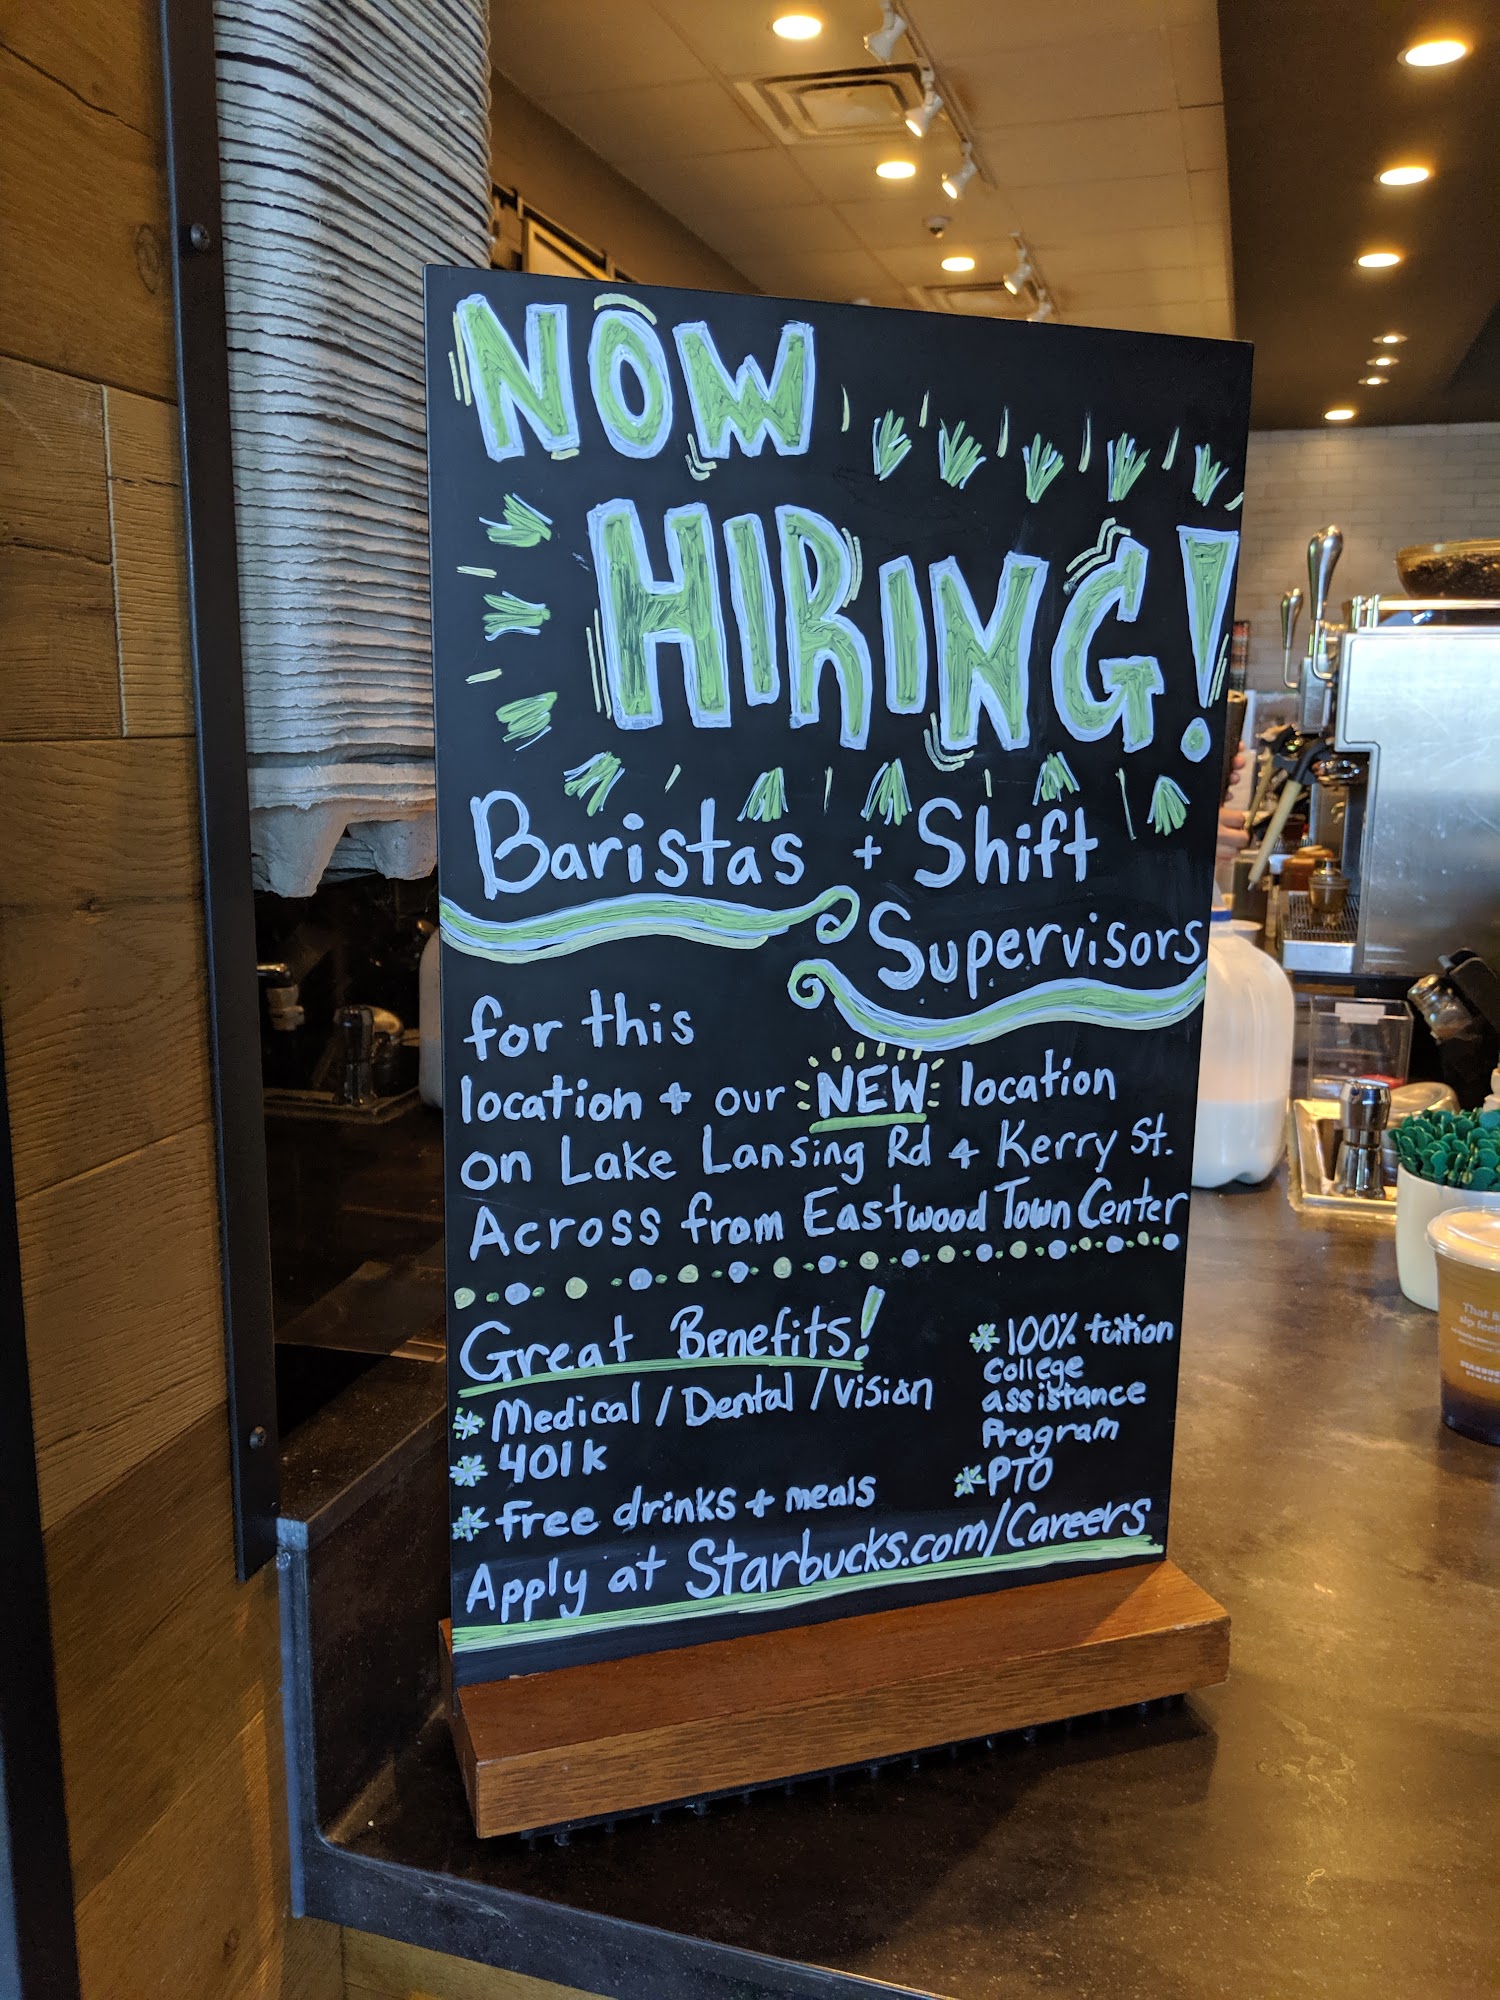 NOW
HIRING!
Baristas + Shift
Supervisors
for this
location + our NEW location
on Lake Lansing Rd + Kerry St.
Across from Eastwood Town Center
Great Benefits!
* Medical / Dental / Vision
* 401k
* Free drinks + meals
* 100% tuition
college
assistance
Program
* PTO
Apply at Starbucks.com/Careers